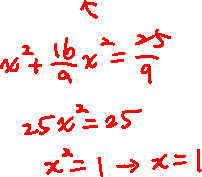 x² + 16/9 x² = 25/9
25x² = 25
x² = 1 → x = 1